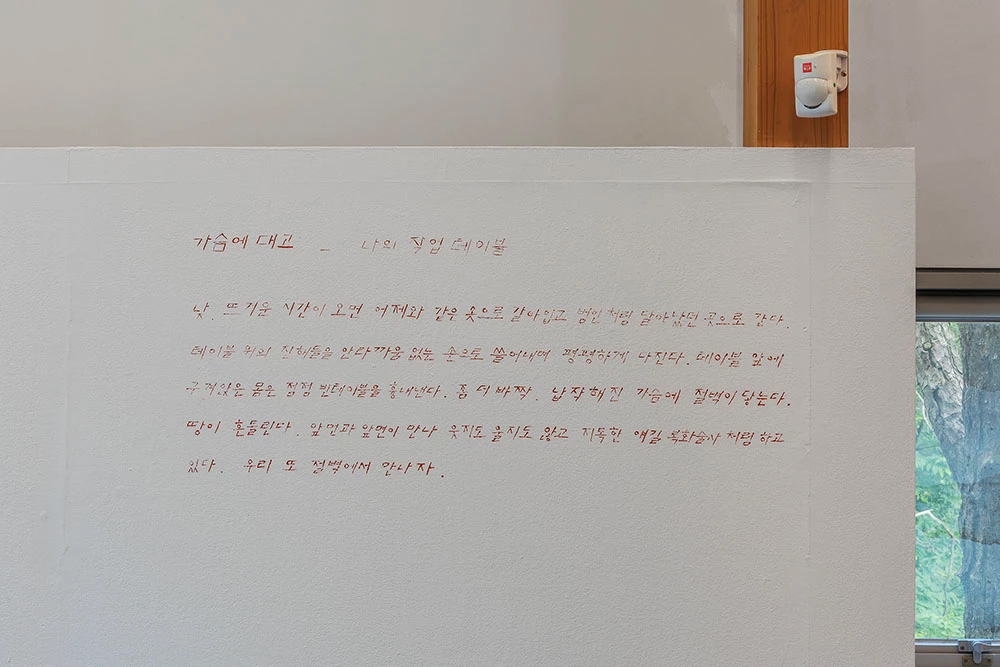 가슴에 대고 - 나의 작업 테이블
낮. 뜨거운 시간이 오면 어제와 같은 옷으로 갈아입고 범인처럼 달아났던 곳으로 간다.
테이블 위의 잔해들을 안타까움 없는 손으로 쓸어내며 평평하게 다진다. 테이블 앞에
구겨앉은 몸은 점점 빈테이블을 흉내낸다. 좀 더 바짝. 납작해진 가슴에 절벽이 닿는다.
땅이 흔들린다. 앞면과 앞면이 만나 웃지도 울지도 않고 지독한 얘길 복화술사처럼 하고
있다. 우리 또 절벽에서 만나자.